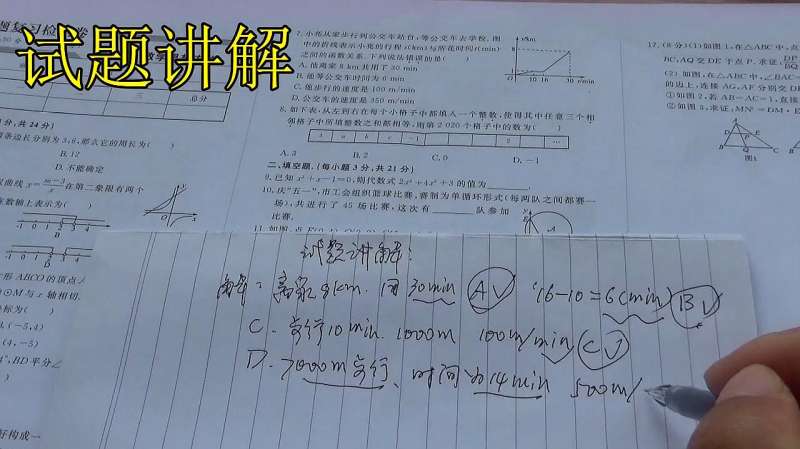 试题讲解
7.小亮从家步行到公交车站台,等公交车去学校.图
中的折线表示小亮的行程s(km)与所花时间t(min)
之间的函数关系.下列说法错误的是( )
A.他离家8 km共用了30 min
B.他等公交车时间为6 min
C.他步行的速度是100 m/min
D.公交车的速度是350 m/min
8.如下表,从左到右在每个小格子中都填入一个整数,使得其中任意三个相
邻格子中所填整数之和都相等,则第2 020个格子中的数为( )
3 a b c -1 2 …
A.3 B.2 C.0 D.-1
二、填空题.(每小题3分,共21分)
9.已知x²+x-1=0,则代数式2x³+4x²+3的值为
10.庆"五一",市工会组织篮球比赛,赛制为单循环形式(每两队之间都赛一
场),共进行了45场比赛,这次有 队参加
比赛.
s/km
8
1
O 10 16 30 t/min
总分
分,共24分)
条边长分别为3,6,那么它的周长为( )
B.12
D.不能确定
在第二象限有两个
在数轴上表示为( )
形ABCO的顶点
⊙M与x轴相切.
标为( )
(-5,4)
(4,-5)
BD平分∠
好构成一
17.(8分)(1)如图1,在△ABC中,点
BC,AQ交DE于点P.求证:
(2)如图,在△ABC中,∠BAC=
的边上,连接AG,AF分别交DE
①如图2,若AB=AC=1,直接
②如图3,求证:MN²=DM·E
图1
试题讲解:
解:离家8km.用30min A√ 16-10=6(min) B√
C.步行10min.1000m 100m/min C√
D.7000m步行、时间为14min 500m/